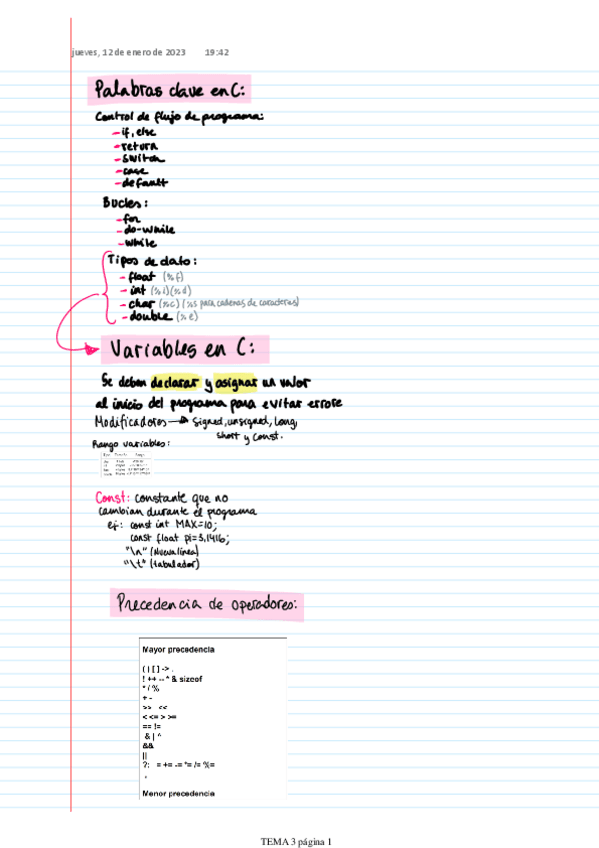 jueves, 12 de enero de 2023 19:42
Palabras clave en C:
Control de flujo de programa:
- if, else
- return
- switch
- case
- default
Bucles:
- for
- do-while
- while
Tipos de dato:
- float (%f)
- int (%i)(%d)
- char (%c) (%s para cadenas de caracteres)
- double (%e)
Variables en C:
Se deben declarar y asignar un valor
al inicio del programa para evitar errore
Modificadores → Signed, unsigned, long,
short y const.
Rango variables:
Const: constante que no
cambian durante el programa
ej: const int MAX=10;
const float pi=3,1416;
"\n" (Nueva línea)
"\t" (tabulador)
Precedencia de operadores:
Mayor precedencia
( ) [ ] -> .
! ++ -- * & sizeof
* / %
+ -
>> <<
< <= > >=
== !=
& | ^
&&
||
?: = += -= *= /= %=
,
Menor precedencia
TEMA 3 página 1